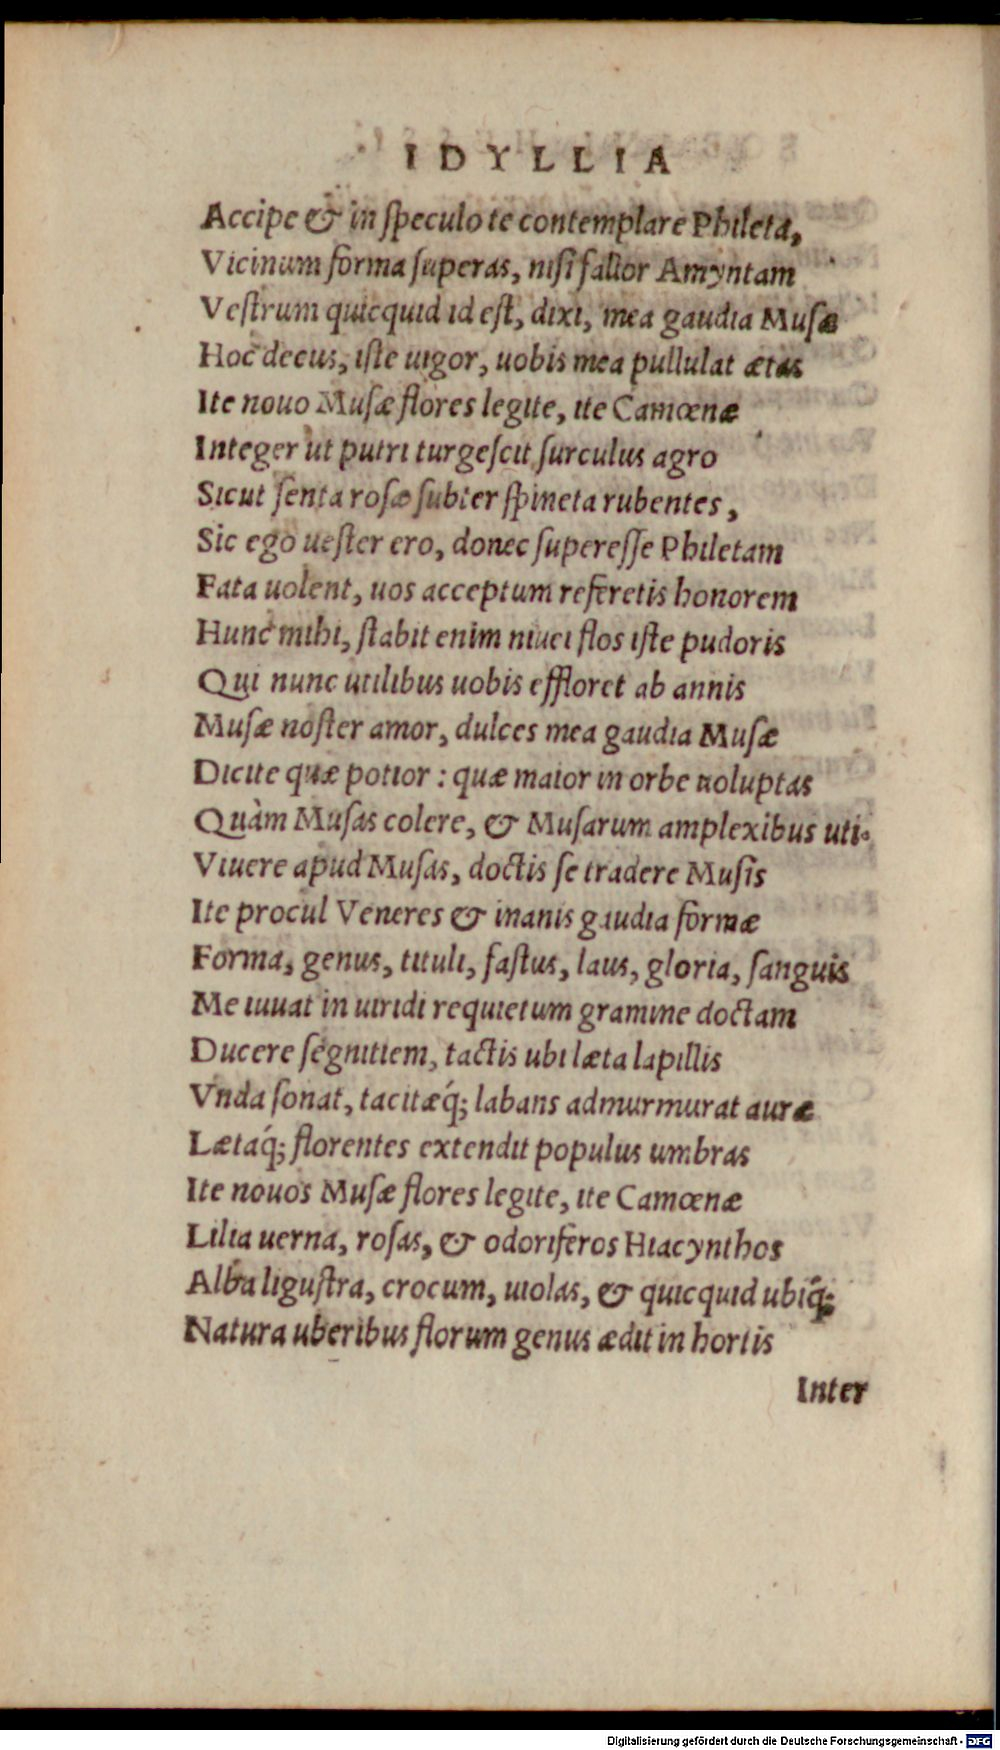 IDYLLIA
Accipe & in ſpeculo te contemplare Phileta,
Vicinum forma ſuperas, niſi fallor Amyntam
Veſtrum quicquid id eſt, dixi, mea gaudia Muſæ
Hoc decus, iſte uigor, uobis mea pullulat ætas
Ite nouo Muſæ flores legite, ite Camœnæ
Integer ut putri turgeſcit ſurculus agro
Sicut ſenta roſæ ſubter ſpineta rubentes,
Sic ego ueſter ero, donec ſupereſſe Philetam
Fata uolent, uos acceptum referetis honorem
Hunc mihi, ſtabit enim niuei flos iſte pudoris
Qui nunc utilibus uobis effloret ab annis
Muſæ noſter amor, dulces mea gaudia Muſæ
Dicite quæ potior : quæ maior in orbe uoluptas
Quàm Muſas colere, & Muſarum amplexibus uti.
Viuere apud Muſas, doctis ſe tradere Muſis
Ite procul Veneres & inanis gaudia formæ
Forma, genus, tituli, faſtus, laus, gloria, ſanguis
Me iuuat in uiridi requietum gramine doctam
Ducere ſegnitiem, tactis ubi læta lapillis
Vnda ſonat, tacitæq́; labans admurmurat auræ
Lætaq́; florentes extendit populus umbras
Ite nouos Muſæ flores legite, ite Camœnæ
Lilia uerna, roſas, & odoriferos Hiacynthos
Alba liguſtra, crocum, uiolas, & quicquid ubiq́;
Natura uberibus florum genus ædit in hortis
Inter
Digitalisierung gefördert durch die Deutsche Forschungsgemeinschaft - DFG